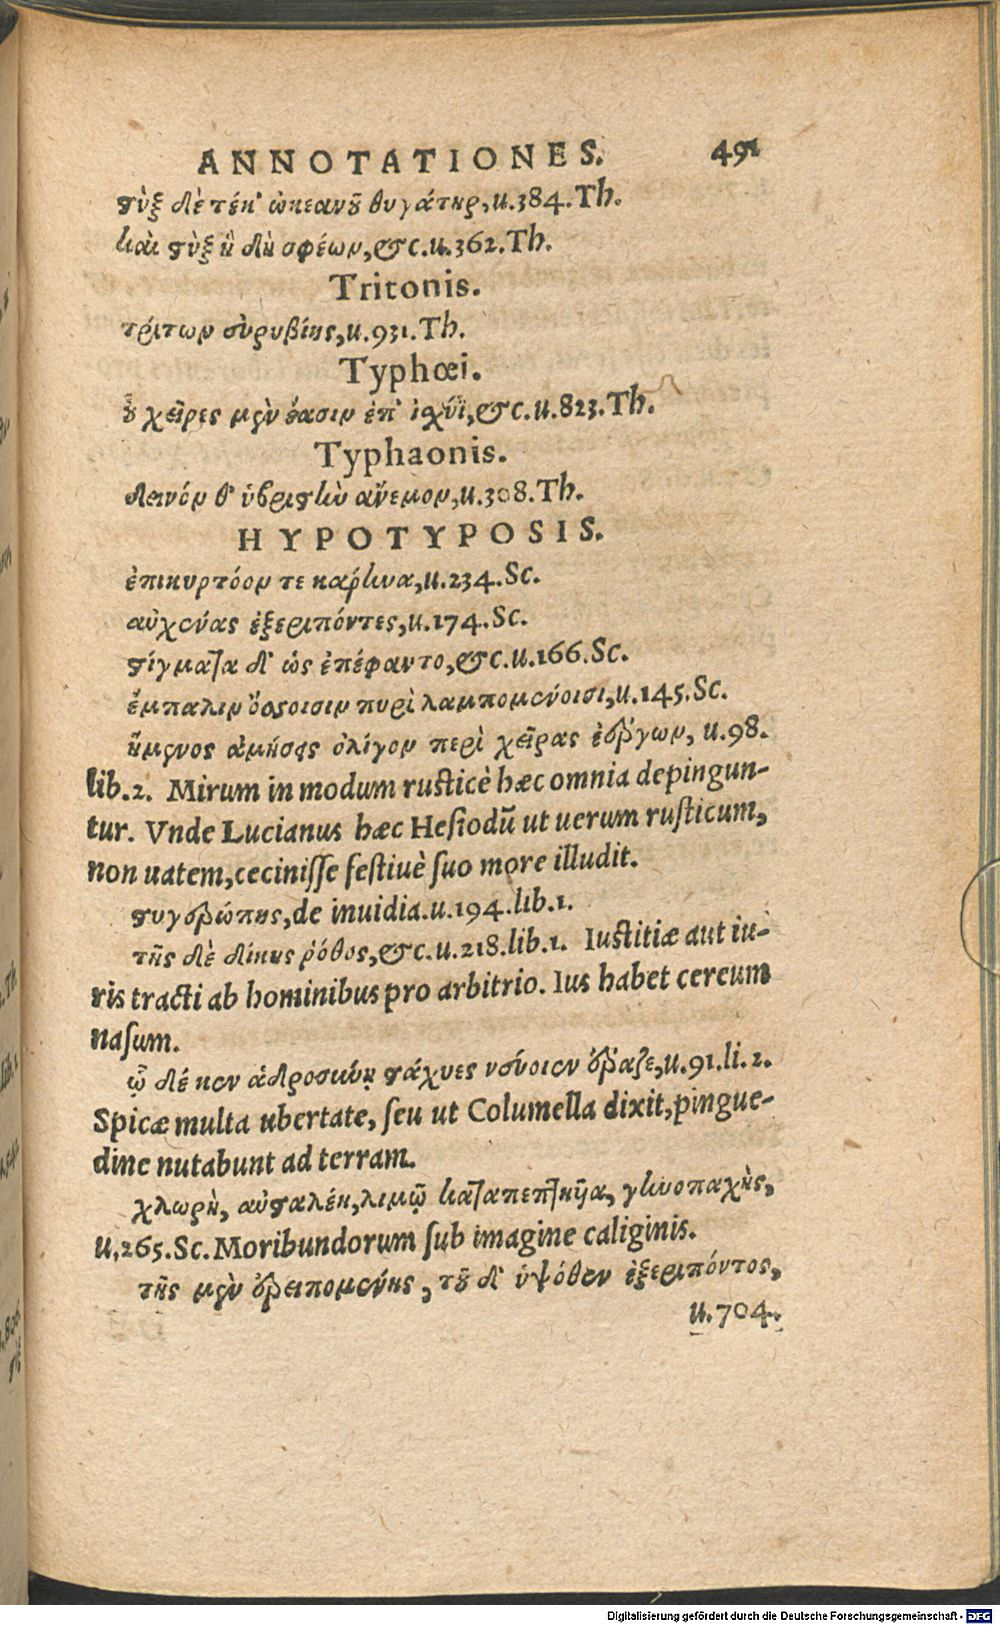 ANNOTATIONES. 491
στὺξ δὲ τέκ' ὠκεανοῦ θυγάτηρ, u.384.Th.
καὶ στὺξ ἣ δὴ σφέων, &c. u.362. Th.
Tritonis.
τρίτων εὐρυβίης, u.931. Th.
Typhœi.
οὗ χεῖρες μὲν ἔασιν ἐπ' ἰσχύϊ, &c. u.823. Th.
Typhaonis.
δεινόν θ' ὑβριστὴν ἄνεμον, u.308. Th.
HYPOTYPOSIS.
ἐπικυρτόον τε κάρηνα, u.234. Sc.
αὐχένας ἐξεριπόντες, u.174. Sc.
στίγματα δ' ὡς ἐπέφαντο, &c. u.166. Sc.
ἔμπαλιν ὄσσοισιν πυρὶ λαμπομένοισι, u.145. Sc.
ἥμενος ἀμήσεις ὀλίγον περὶ χεῖρας ἐέργων, u.98.
lib.2. Mirum in modum rusticè hæc omnia depingun-
tur. Vnde Lucianus hæc Hesiodũ ut uerum rusticum,
non uatem, cecinisse festiuè suo more illudit.
στυγερώπης, de inuidia. u.194. lib.1.
τῆς δὲ δίκης ῥόθος, &c. u.218. lib.1. Iustitiæ aut iu-
ris tracti ab hominibus pro arbitrio. Ius habet cereum
nasum.
ᾧ δέ κεν ἁδροσύνῃ στάχυες νεύοιεν ἔραζε, u.91. li.2.
Spicæ multa ubertate, seu ut Columella dixit, pingue-
dine nutabunt ad terram.
χλωρὴ, αὐσταλέη, λιμῷ καταπεπτηκῦα, γουνοπαχὴς,
u.265. Sc. Moribundorum sub imagine caliginis.
τῆς μὲν ἐρειπομένης, τοῦ δ' ὑψόθεν ἐξεριπόντος,
u.704.
Digitalisierung gefördert durch die Deutsche Forschungsgemeinschaft - DFG